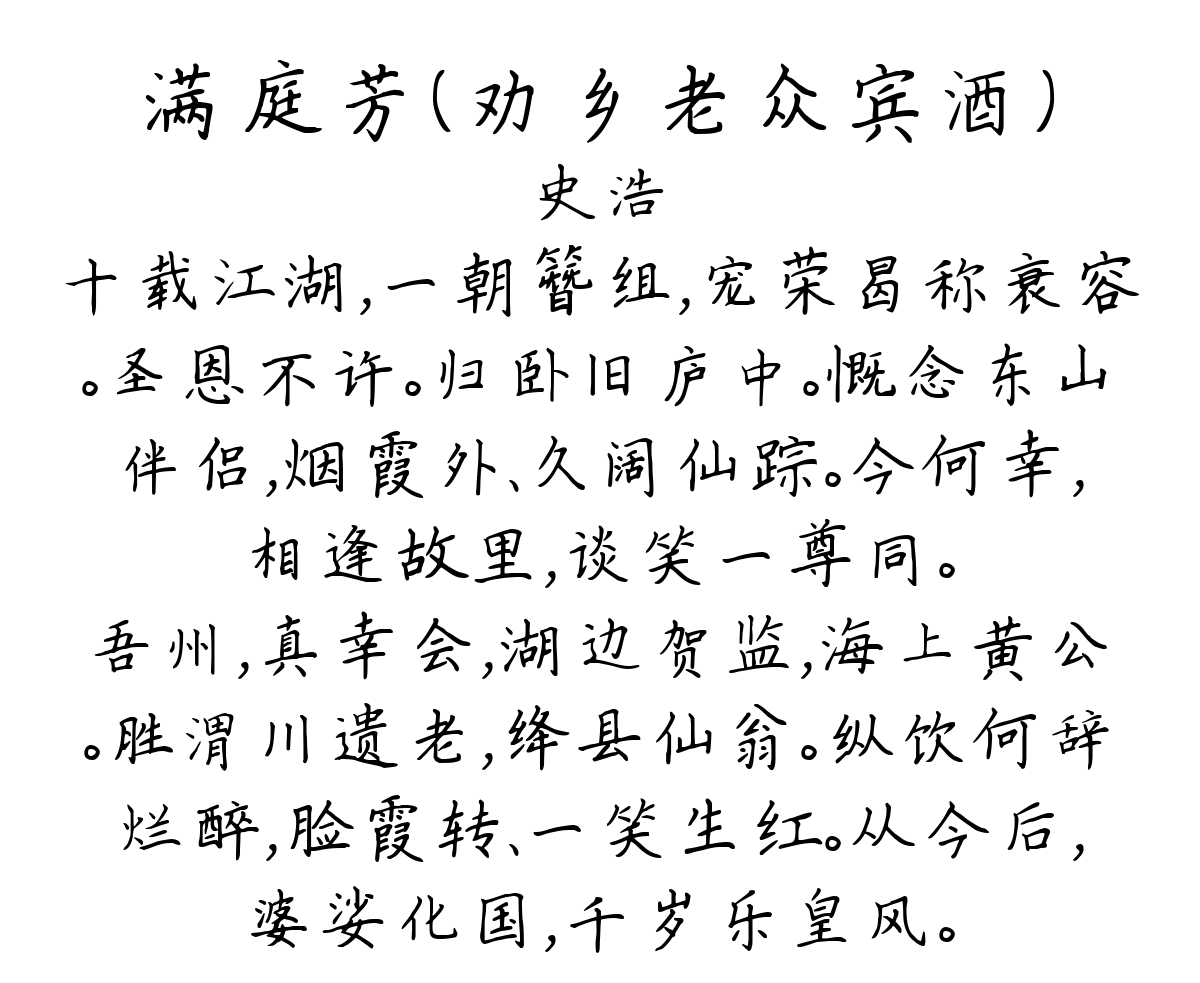 满庭芳(劝乡老众宾酒)
史浩
十载江湖,一朝簪组,宠荣曷称衰容
。圣恩不许。归卧旧庐中。慨念东山
伴侣,烟霞外、久阔仙踪。今何幸,
相逢故里,谈笑一尊同。
吾州,真幸会,湖边贺监,海上黄公
。胜渭川遗老,绛县仙翁。纵饮何辞
烂醉,脸霞转、一笑生红。从今后,
婆娑化国,千岁乐皇风。